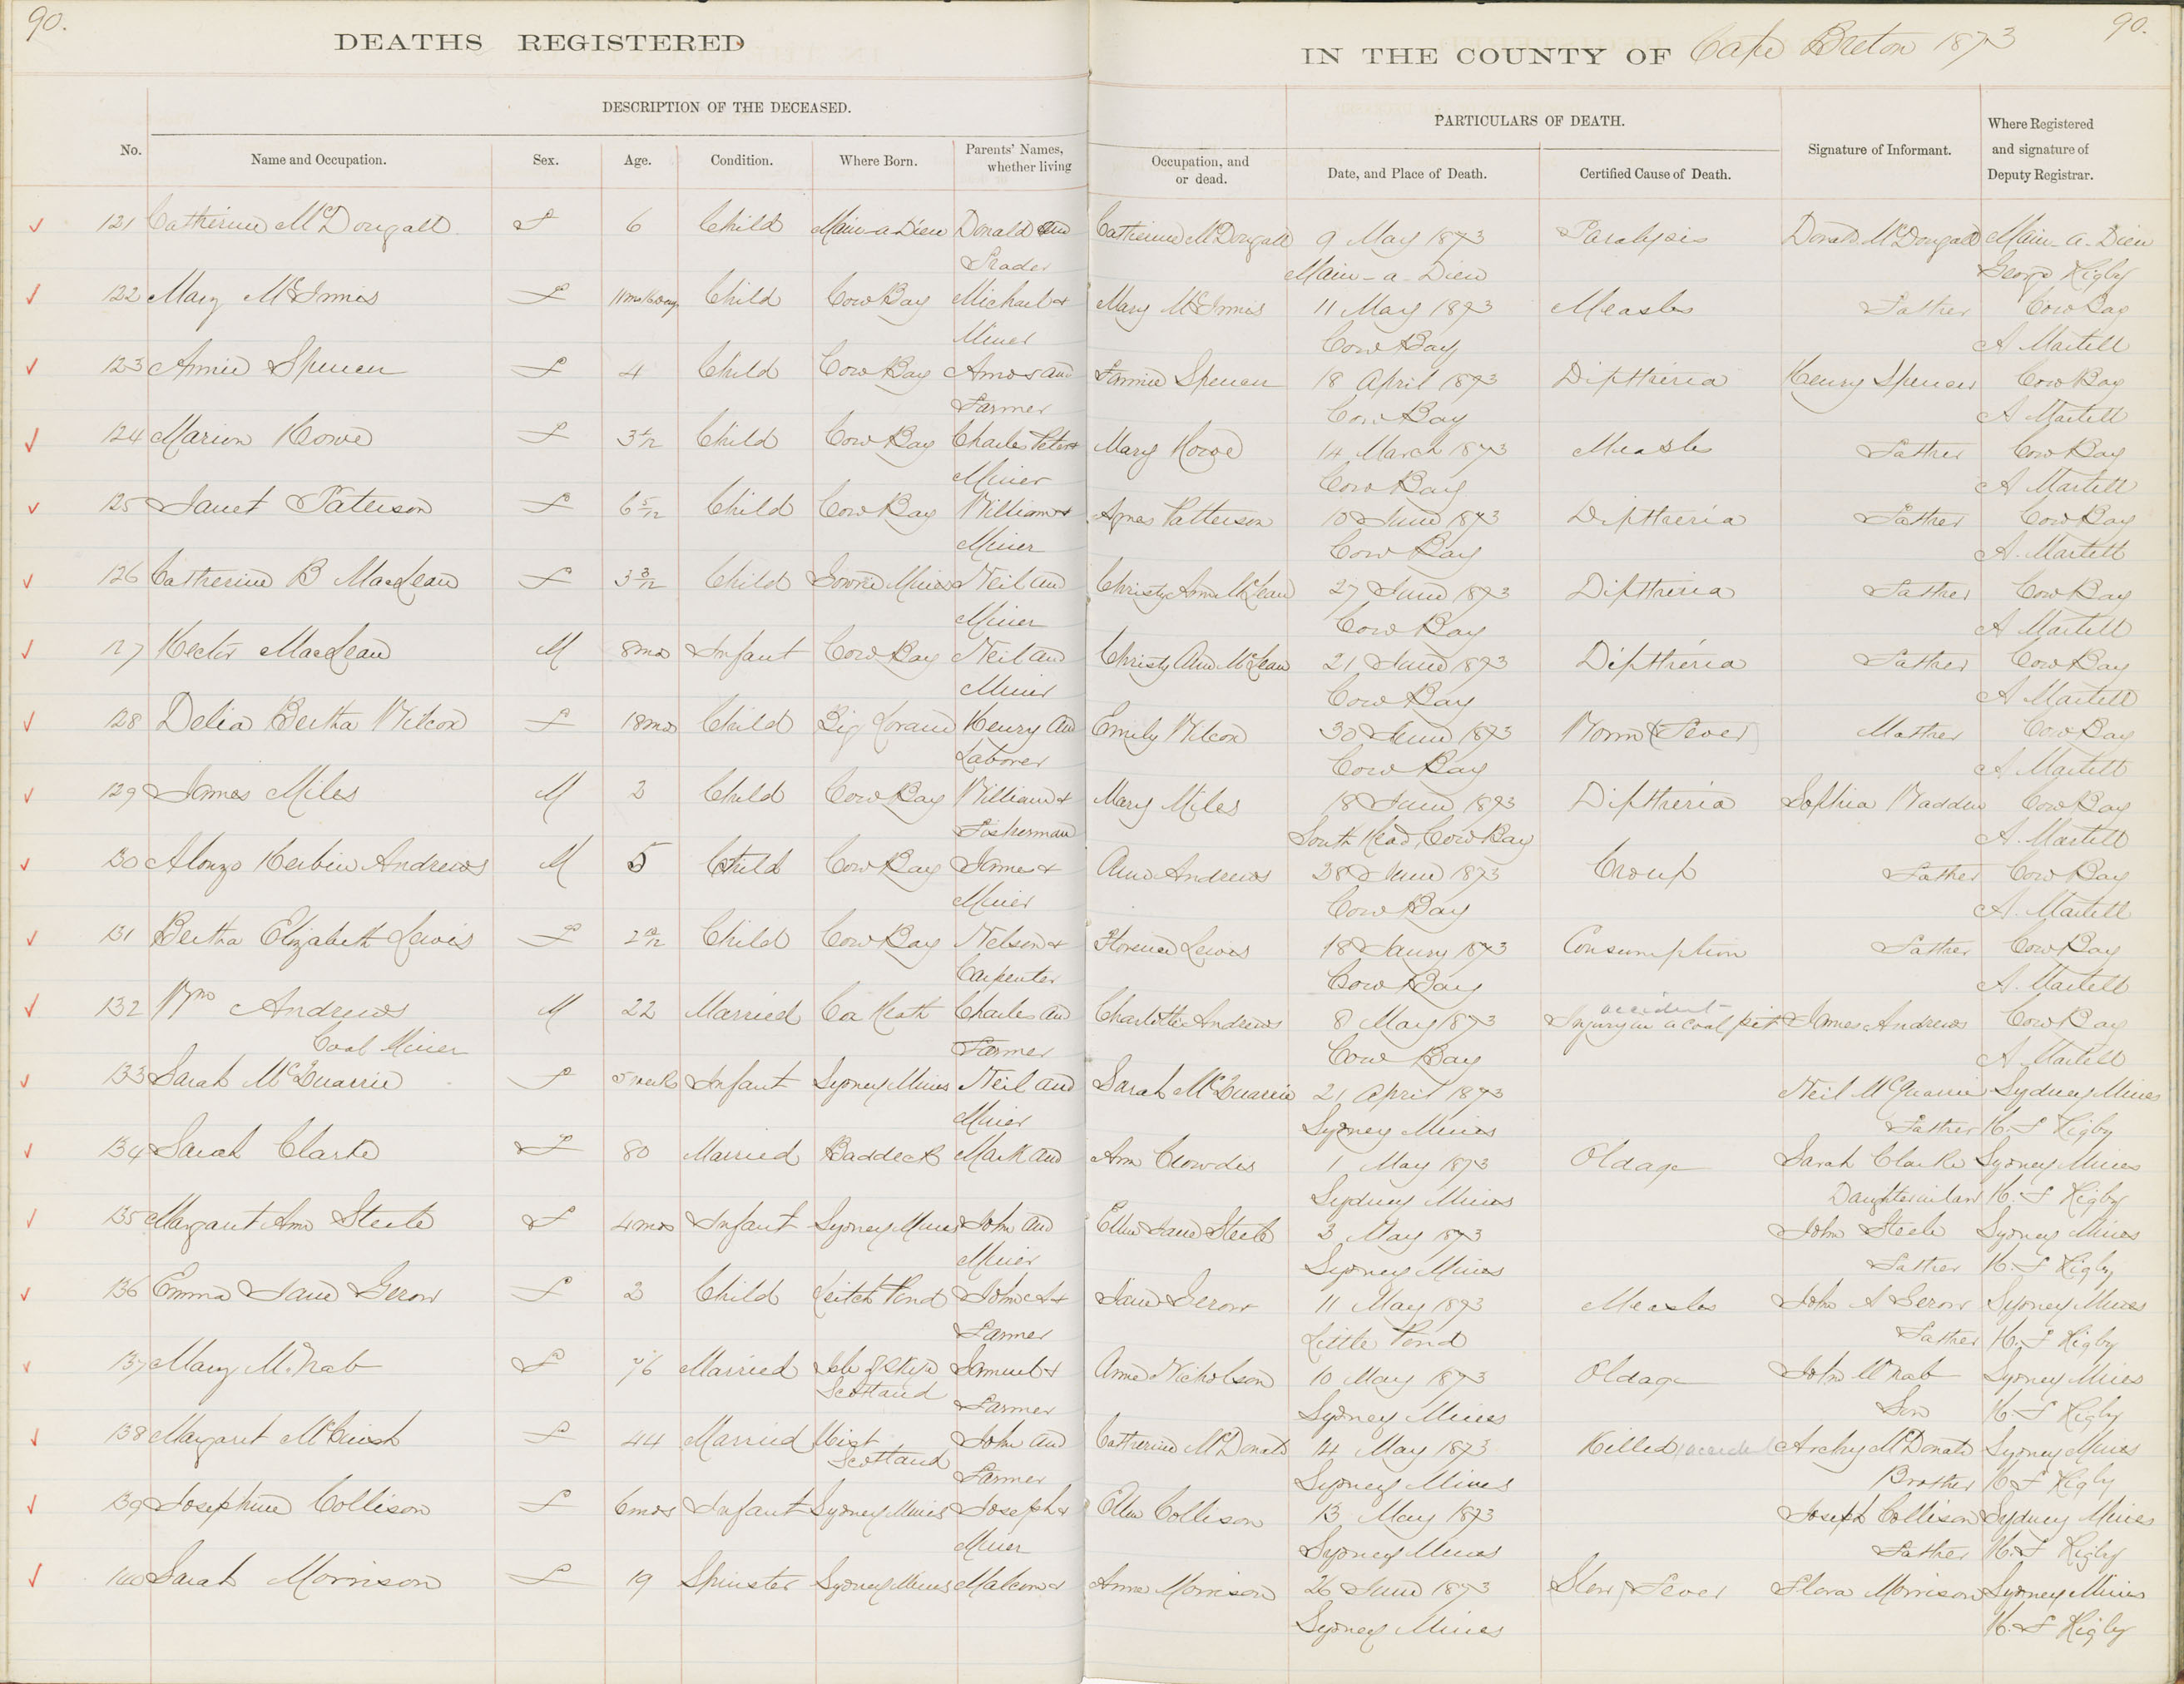 90.
DEATHS REGISTERED IN THE COUNTY OF Cape Breton 1873
90.
DESCRIPTION OF THE DECEASED.
PARTICULARS OF DEATH.
No. Name and Occupation. Sex. Age. Condition. Where Born. Parents' Names, whether living Occupation, and or dead. Date, and Place of Death. Certified Cause of Death. Signature of Informant. Where Registered and signature of Deputy Registrar.
121 Catherine McDougall F 6 Child Main-a-Dieu Donald and Catherine McDougall 9 May 1873 Paralysis Donald McDougall Main-a-Dieu
Trader Main-a-Dieu George Rigby
122 Mary McInnis F Child Cow Bay Michael + Mary McInnis 11 May 1873 Measles Father Cow Bay
Miner Cow Bay A Martell
123 Annie Spencer F 4 Child Cow Bay Amos and Fannie Spencer 18 April 1873 Diptheria Henry Spencer Cow Bay
Farmer Cow Bay A Martell
124 Marion Howe F 3 Child Cow Bay Charles Peter + Mary Howe 14 March 1873 Measles Father Cow Bay
Miner Cow Bay A Martell
125 Janet Paterson F 6 5/12 Child Cow Bay William + Agnes Patterson 10 June 1873 Diptheria Father Cow Bay
Miner Cow Bay A. Martell
126 Catherine B MacLean F 3 3/12 Child Mines Neil and Christy Ann McLean 27 June 1873 Diptheria Father Cow Bay
Miner Cow Bay A Martell
127 Hector MacLean M 8mos Infant Cow Bay Neil and Christy Ann McLean 21 June 1873 Diptheria Father Cow Bay
Miner Cow Bay A Martell
128 Delia Bertha Wilcox F 18mos Child Big Loraine Henry and Emily Wilcox 30 June 1873 Worm (Fever) Mother Cow Bay
Laborer Cow Bay A Martell
129 James Miles M 2 Child Cow Bay William + Mary Miles 18 June 1873 Diptheria Sophia Wadden Cow Bay
Fisherman South Head, Cow Bay A. Martell
130 Alonzo Andrews M 5 Child Cow Bay James + Ann Andrews June 1873 Croup Father Cow Bay
Miner Cow Bay A. Martell
131 Bertha Elizabeth Lewis F 2 Child Cow Bay Nelson + Florence Lewis 18 1873 Consumption Father Cow Bay
Carpenter Cow Bay A. Martell
132 Wm Andrews M 22 Married Charles and Charlotte Andrews 8 May 1873 accident Injury in a Coal pit James Andrews Cow Bay
Coal Miner Farmer Cow Bay A. Martell
133 Sarah McQuarrie F 5 weeks Infant Sydney Mines Neil and Sarah McQuarrie 21 April 1873 Neil McQuarrie Sydney Mines
Miner Sydney Mines Father H. F Rigby
134 Sarah Clarke F 80 Married Baddeck Mark and Ann Crowdis 1 May 1873 Old age Sarah Clarke Sydney Mines
Sydney Mines Daughter in law H. F Rigby
135 Margaret Ann Steele F 4mos Infant Sydney Mines John and Ellen Jane Steele 3 May 1873 John Steele Sydney Mines
Miner Sydney Mines Father H. F Rigby
136 Emma Jane Gerow F 2 Child Pond John A + Jane Gerow 11 May 1873 Measles John A Gerow Sydney Mines
Farmer Little Pond Father H. F Rigby
137 Mary McNab F 76 Married Isle of Skye Samuel + Anne Nicholson 10 May 1873 Old age John McNab Sydney Mines
Scotland Farmer Sydney Mines Son H. F Rigby
138 Margaret F 44 Married Uist John and Catherine McDonald 14 May 1873 Killed accident Archy McDonald Sydney Mines
Scotland Farmer Sydney Mines Brother H. F Rigby
139 Josephine Collison F 6mos Infant Sydney Mines Joseph + Ellen Collison 13 May 1873 Joseph Collison Sydney Mines
Miner Sydney Mines Father H. F Rigby
140 Sarah Morrison F 19 Spinster Sydney Mines Malcom + Anne Morrison 26 June 1873 Slow Fever Flora Morrison Sydney Mines
Sydney Mines H. F Rigby